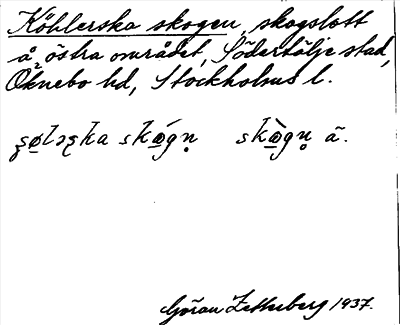 Köhlerska skogen, skogslott
å östra området, Södertälje stad,
Öknebo hd, Stockholms l.
skògn̥ ā.
Göran Zetterberg 1937.